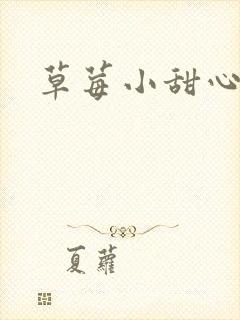 草莓小甜心
夏蘿